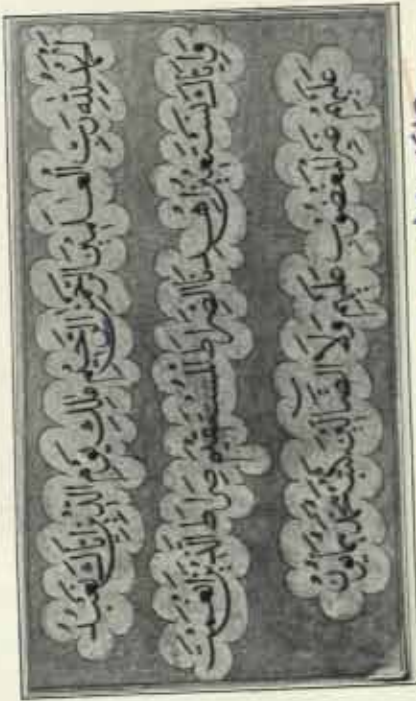 اَلْحَمْدُ لِلّٰهِ رَبِّ الْعَالَمِينَ الرَّحْمٰنِ الرَّحِيمِ مَلِكِ يَوْمِ الدِّينِ اِيَّاكَ نَعْبُدُ
وَاِيَّاكَ نَسْتَعِينُ اِهْدِنَا الصِّرَاطَ الْمُسْتَقِيمَ صِرَاطَ الَّذِينَ اَنْعَمْتَ
عَلَيْهِمْ غَيْرِ الْمَغْضُوبِ عَلَيْهِمْ وَلَا الضَّالِّينَ كتبه محمد همايون